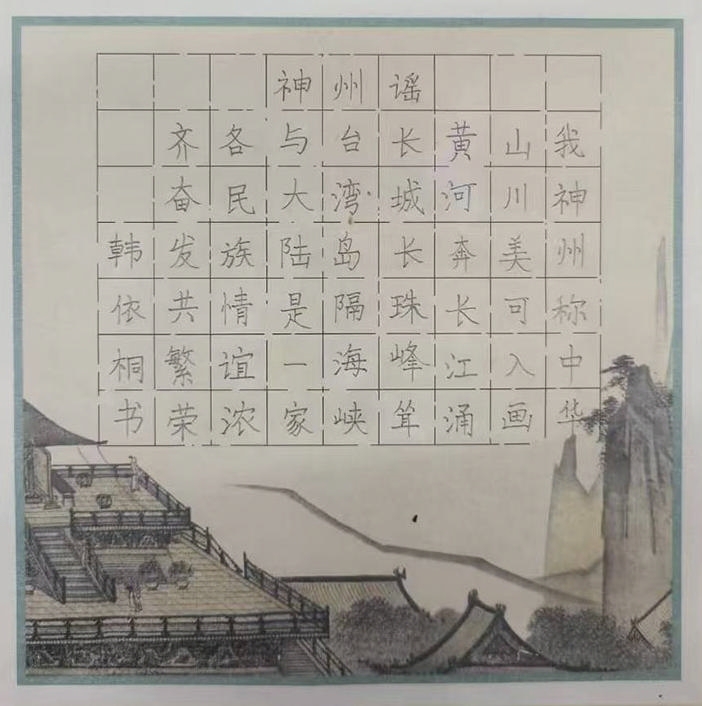 神州谣
我神州称中华
山川美可入画
黄河奔长江涌
长城长珠峰耸
台湾岛隔海峡
与大陆是一家
各民族情谊浓
齐奋发共繁荣
韩依桐书